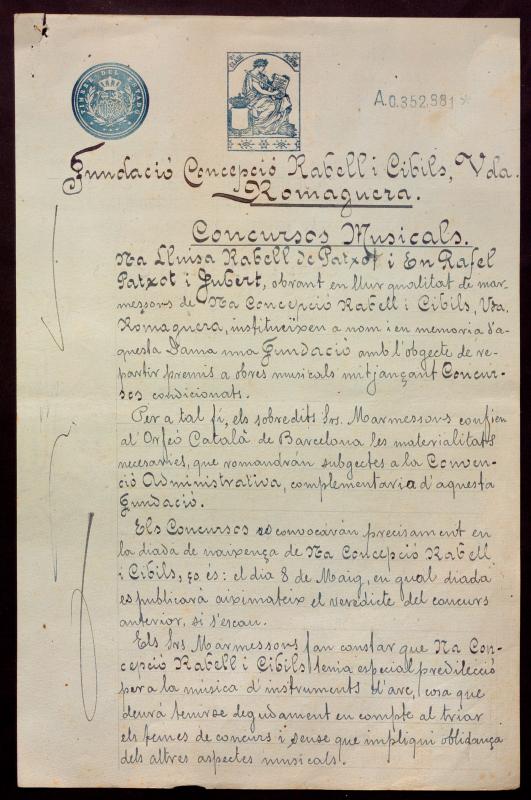 TIMBRE DEL ESTADO
A.0.352.981*
Fundació Concepció Rabell i Cibils, Vda.
Romaguera.
Concursos Musicals.
Na Lluisa Rabell de Patxot i En Rafel
Patxot i Jubert, obrant en llur qualitat de mar-
messors de Na Concepció Rabell i Cibils, Vda.
Romaguera, institueixen a nom i en memoria d'a-
questa Dama una Fundació amb l'obgecte de re-
partir premis a obres musicals mitjançant Concur-
sos condicionats.
Per a tal fi, els sobredits Srs. Marmessors confien
al Orfeó Català de Barcelona les materialitats
necesaries, que romandrán subgectes a la Conven-
ció Administrativa, complementaria d'aquesta
Fundació.
Els Concursos es convocarán precisament en
la diada de naixença de Na Concepció Rabell
i Cibils, ço és: el dia 8 de Maig, en qual diada
es publicará aixímateix el veredicte del concurs
anterior, si s'escau.
Els Srs Marmessors fan constar que Na Con-
cepció Rabell i Cibils tenia especial predilecció
per a la música d'instruments d'arc, cosa que
deurá tenirse degudament en compte al triar
els temes de concurs i sense que impliqui oblidança
dels altres aspectes musicals.